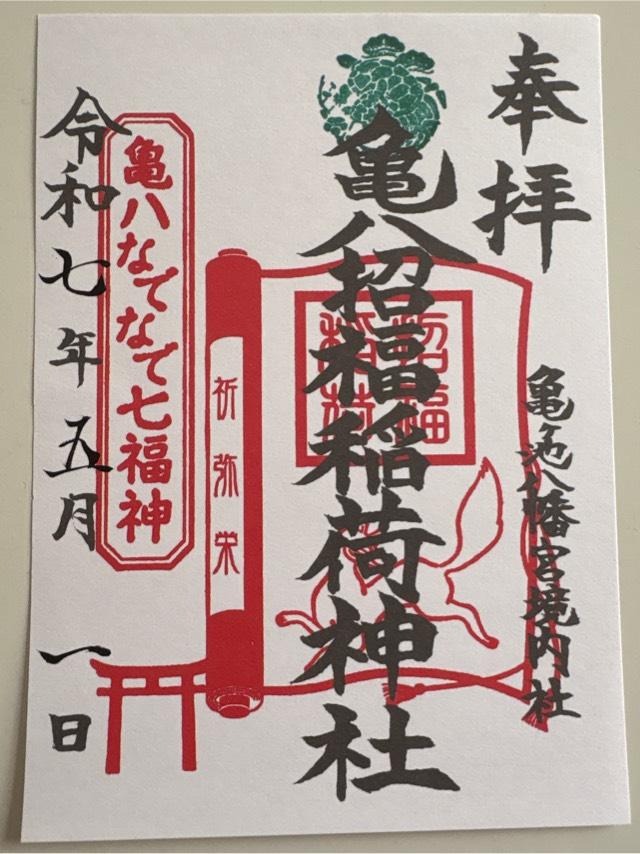 奉拝
亀ヶ池八幡宮境内社
亀八招福稲荷神社
招福
稲荷
祈弥栄
亀八なでなで七福神
令和七年五月一日